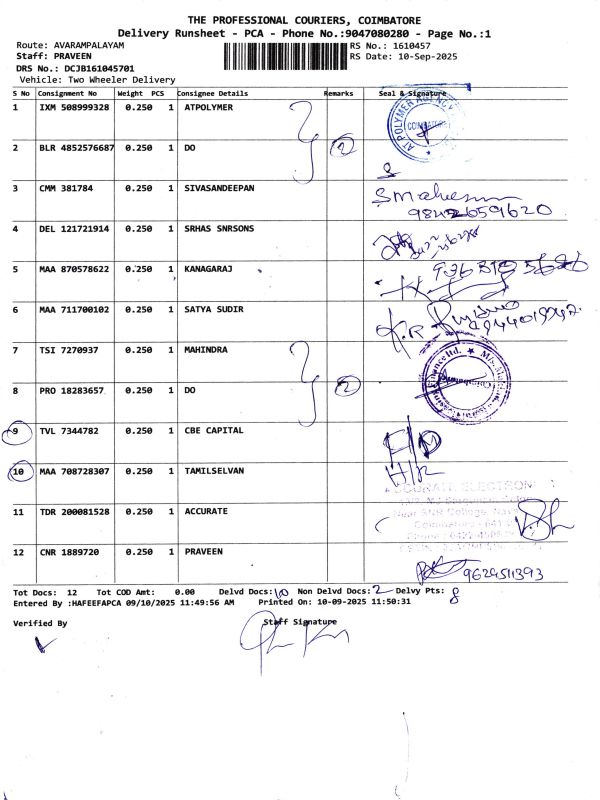 THE PROFESSIONAL COURIERS, COIMBATORE
Delivery Runsheet - PCA - Phone No.:9047080280 - Page No.:1
Route: AVARAMPALAYAM RS No.: 1610457
Staff: PRAVEEN RS Date: 10-Sep-2025
DRS No.: DCJB161045701
Vehicle: Two Wheeler Delivery
S No Consignment No Weight PCS Consignee Details Remarks Seal & Signature
1 IXM 508999328 0.250 1 ATPOLYMER
AT POLYMER AGENCY COIMBATORE
2 BLR 4852576687 0.250 1 DO 2
3 CMM 381784 0.250 1 SIVASANDEEPAN
9842659620
4 DEL 121721914 0.250 1 SRHAS SNRSONS
5 MAA 870578622 0.250 1 KANAGARAJ
6 MAA 711700102 0.250 1 SATYA SUDIR
7 TSI 7270937 0.250 1 MAHINDRA
8 PRO 18283657 0.250 1 DO 2
9 TVL 7344782 0.250 1 CBE CAPITAL
10 MAA 708728307 0.250 1 TAMILSELVAN
11 TDR 200081528 0.250 1 ACCURATE
12 CNR 1889720 0.250 1 PRAVEEN
9629511393
Tot Docs: 12 Tot COD Amt: 0.00 Delvd Docs: 10 Non Delvd Docs: 2 Delvy Pts: 8
Entered By :HAFEEFAPCA 09/10/2025 11:49:56 AM Printed On: 10-09-2025 11:50:31
Verified By Staff Signature